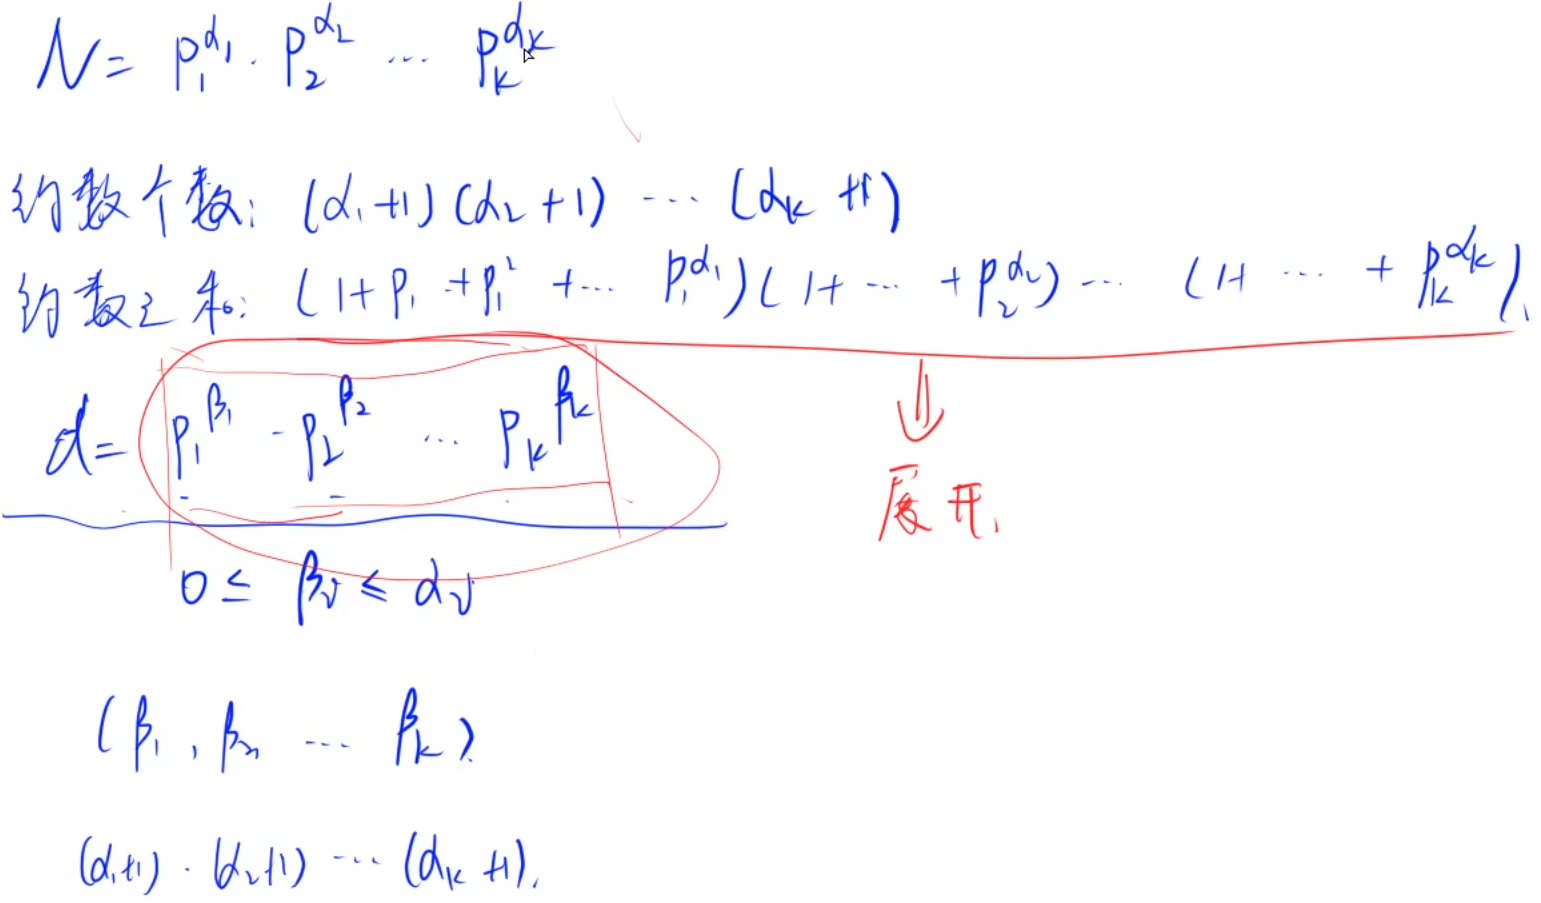 N = p₁^α₁ · p₂^α₂ ... pₖ^αₖ
约数个数: (α₁+1)(α₂+1) ... (αₖ+1)
约数之和: (1+p₁+p₁²+... p₁^α₁)(1+...+p₂^α₂) ... (1+ ... + pₖ^αₖ)
d = p₁^β₁ · p₂^β₂ ... pₖ^βₖ
⇓
展开.
0 ≤ βᵢ ≤ αᵢ
(β₁, β₂, ... βₖ).
(α₁+1)·(α₂+1) ... (αₖ+1).